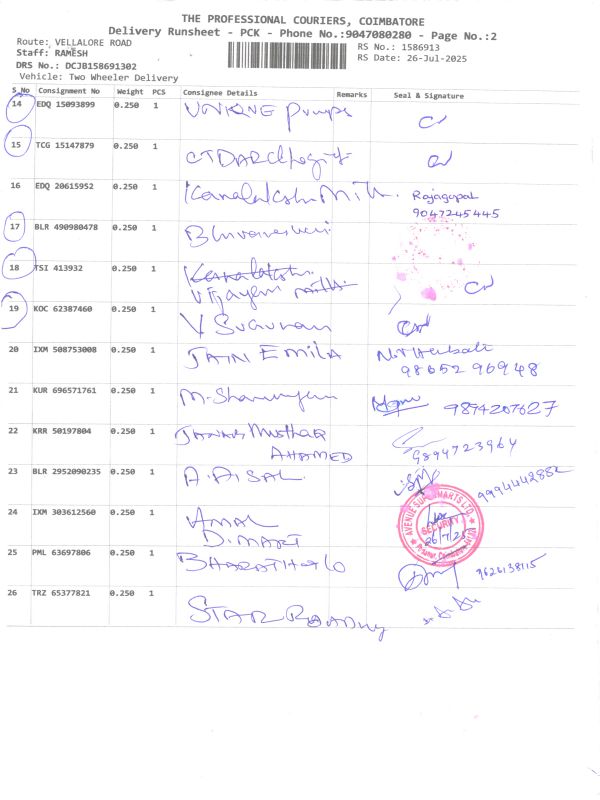 THE PROFESSIONAL COURIERS, COIMBATORE
Delivery Runsheet - PCK - Phone No.:9047080280 - Page No.:2
Route: VELLALORE ROAD
Staff: RAMESH
DRS No.: DCJB158691302
Vehicle: Two Wheeler Delivery
RS No.: 1586913
RS Date: 26-Jul-2025
S No Consignment No Weight PCS Consignee Details Remarks Seal & Signature
14 EDQ 15093899 0.250 1 UNIQUE Pumps
15 TCG 15147879 0.250 1
16 EDQ 20615952 0.250 1 Rajagopal
9047245445
17 BLR 490980478 0.250 1 Bhuvaneshwari
18 TSI 413932 0.250 1
19 KOC 62387460 0.250 1 V
20 IXM 508753008 0.250 1 JAIN EMILA
98652 96948
21 KUR 696571761 0.250 1 9894207627
22 KRR 50197804 0.250 1
AHAMED 9894723964
23 BLR 2952090235 0.250 1 9994442882
24 IXM 303612560 0.250 1 AMAL
D.MART
AVENUE SUPERMARTS LTD.
SECURITY
26/7/25
25 PML 63697806 0.250 1 9626138115
26 TRZ 65377821 0.250 1 STAR